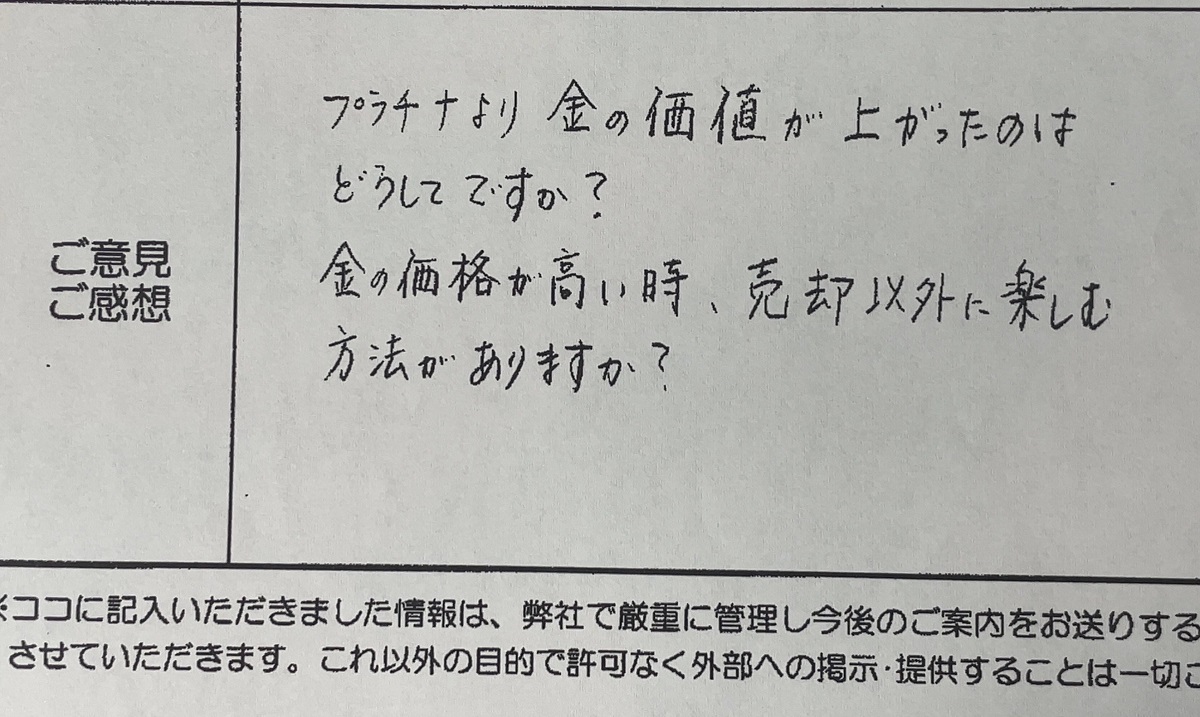 ご意見
ご感想
プラチナより金の価値が上がったのは
どうしてですか？
金の価格が高い時、売却以外に楽しむ
方法がありますか？
※ココに記入いただきました情報は、弊社で厳重に管理し今後のご案内をお送りする
させていただきます。これ以外の目的で許可なく外部への掲示・提供することは一切ご